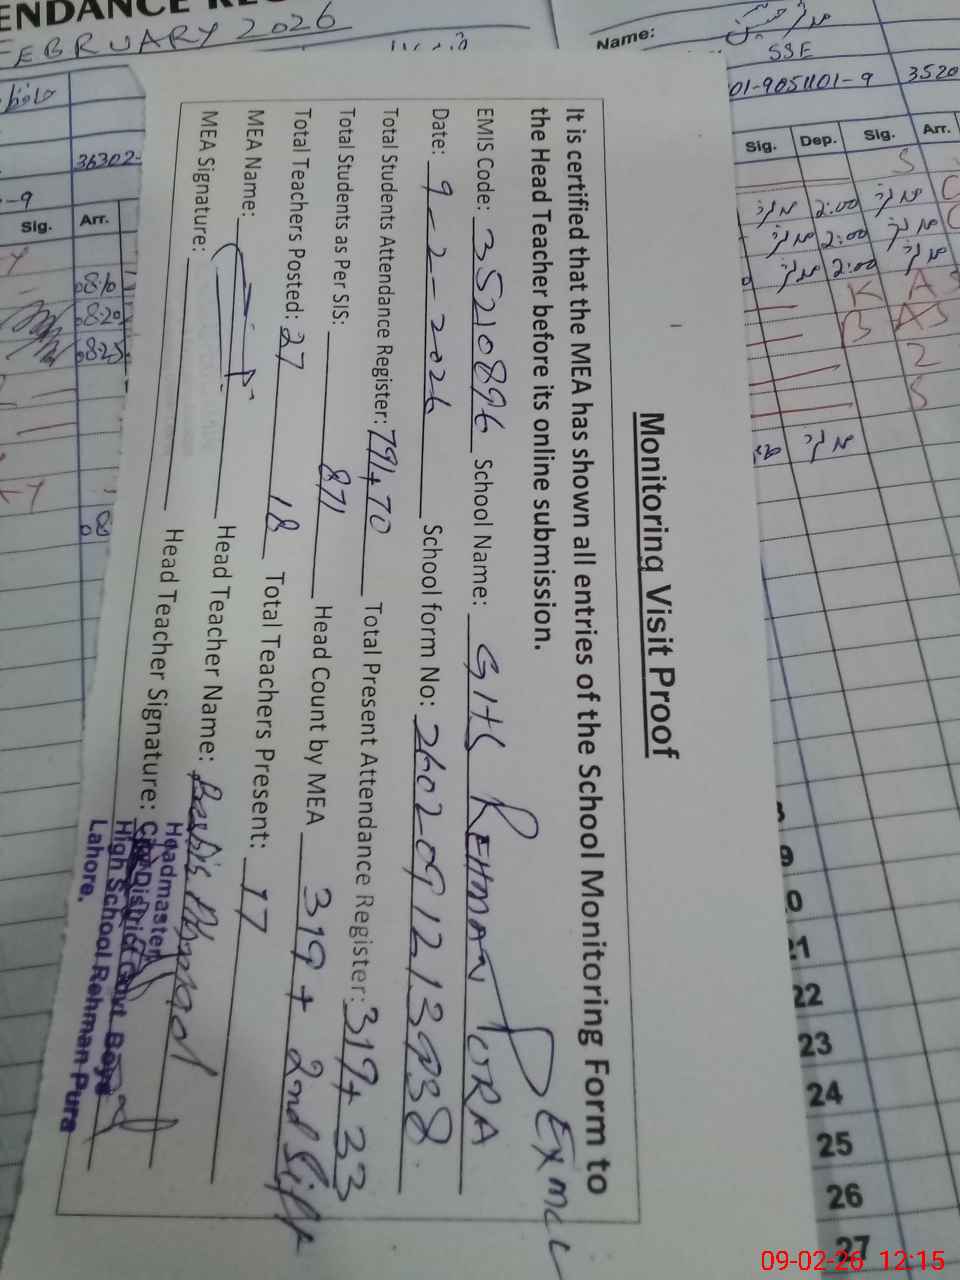 ENDANCE RE
FEBRUARY 2026
36302-
-9
Sig.
Arr.
08:10
08:20
08:25
Name:
SSE
01-9051101-9
3520
Sig.
Dep.
Sig.
Arr.
S
2:00
2:00
2:00
Monitoring Visit Proof
It is certified that the MEA has shown all entries of the School Monitoring Form to
the Head Teacher before its online submission.
EMIS Code: 35210896 School Name: GHS REHMAN PURA
Ex MCL
Date: 9-2-2026 School form No: 2602091213938
Total Students Attendance Register: 791+70 Total Present Attendance Register: 319+33
Total Students as Per SIS: 871 Head Count by MEA 319 + 2nd Sift
Total Teachers Posted: 27 18 Total Teachers Present: 17
MEA Name: Head Teacher Name:
MEA Signature: Head Teacher Signature:
Headmaster
City District Govt. Boys
High School Rehman Pura
Lahore.
22
23
24
25
26
27
09-02-26 12:15